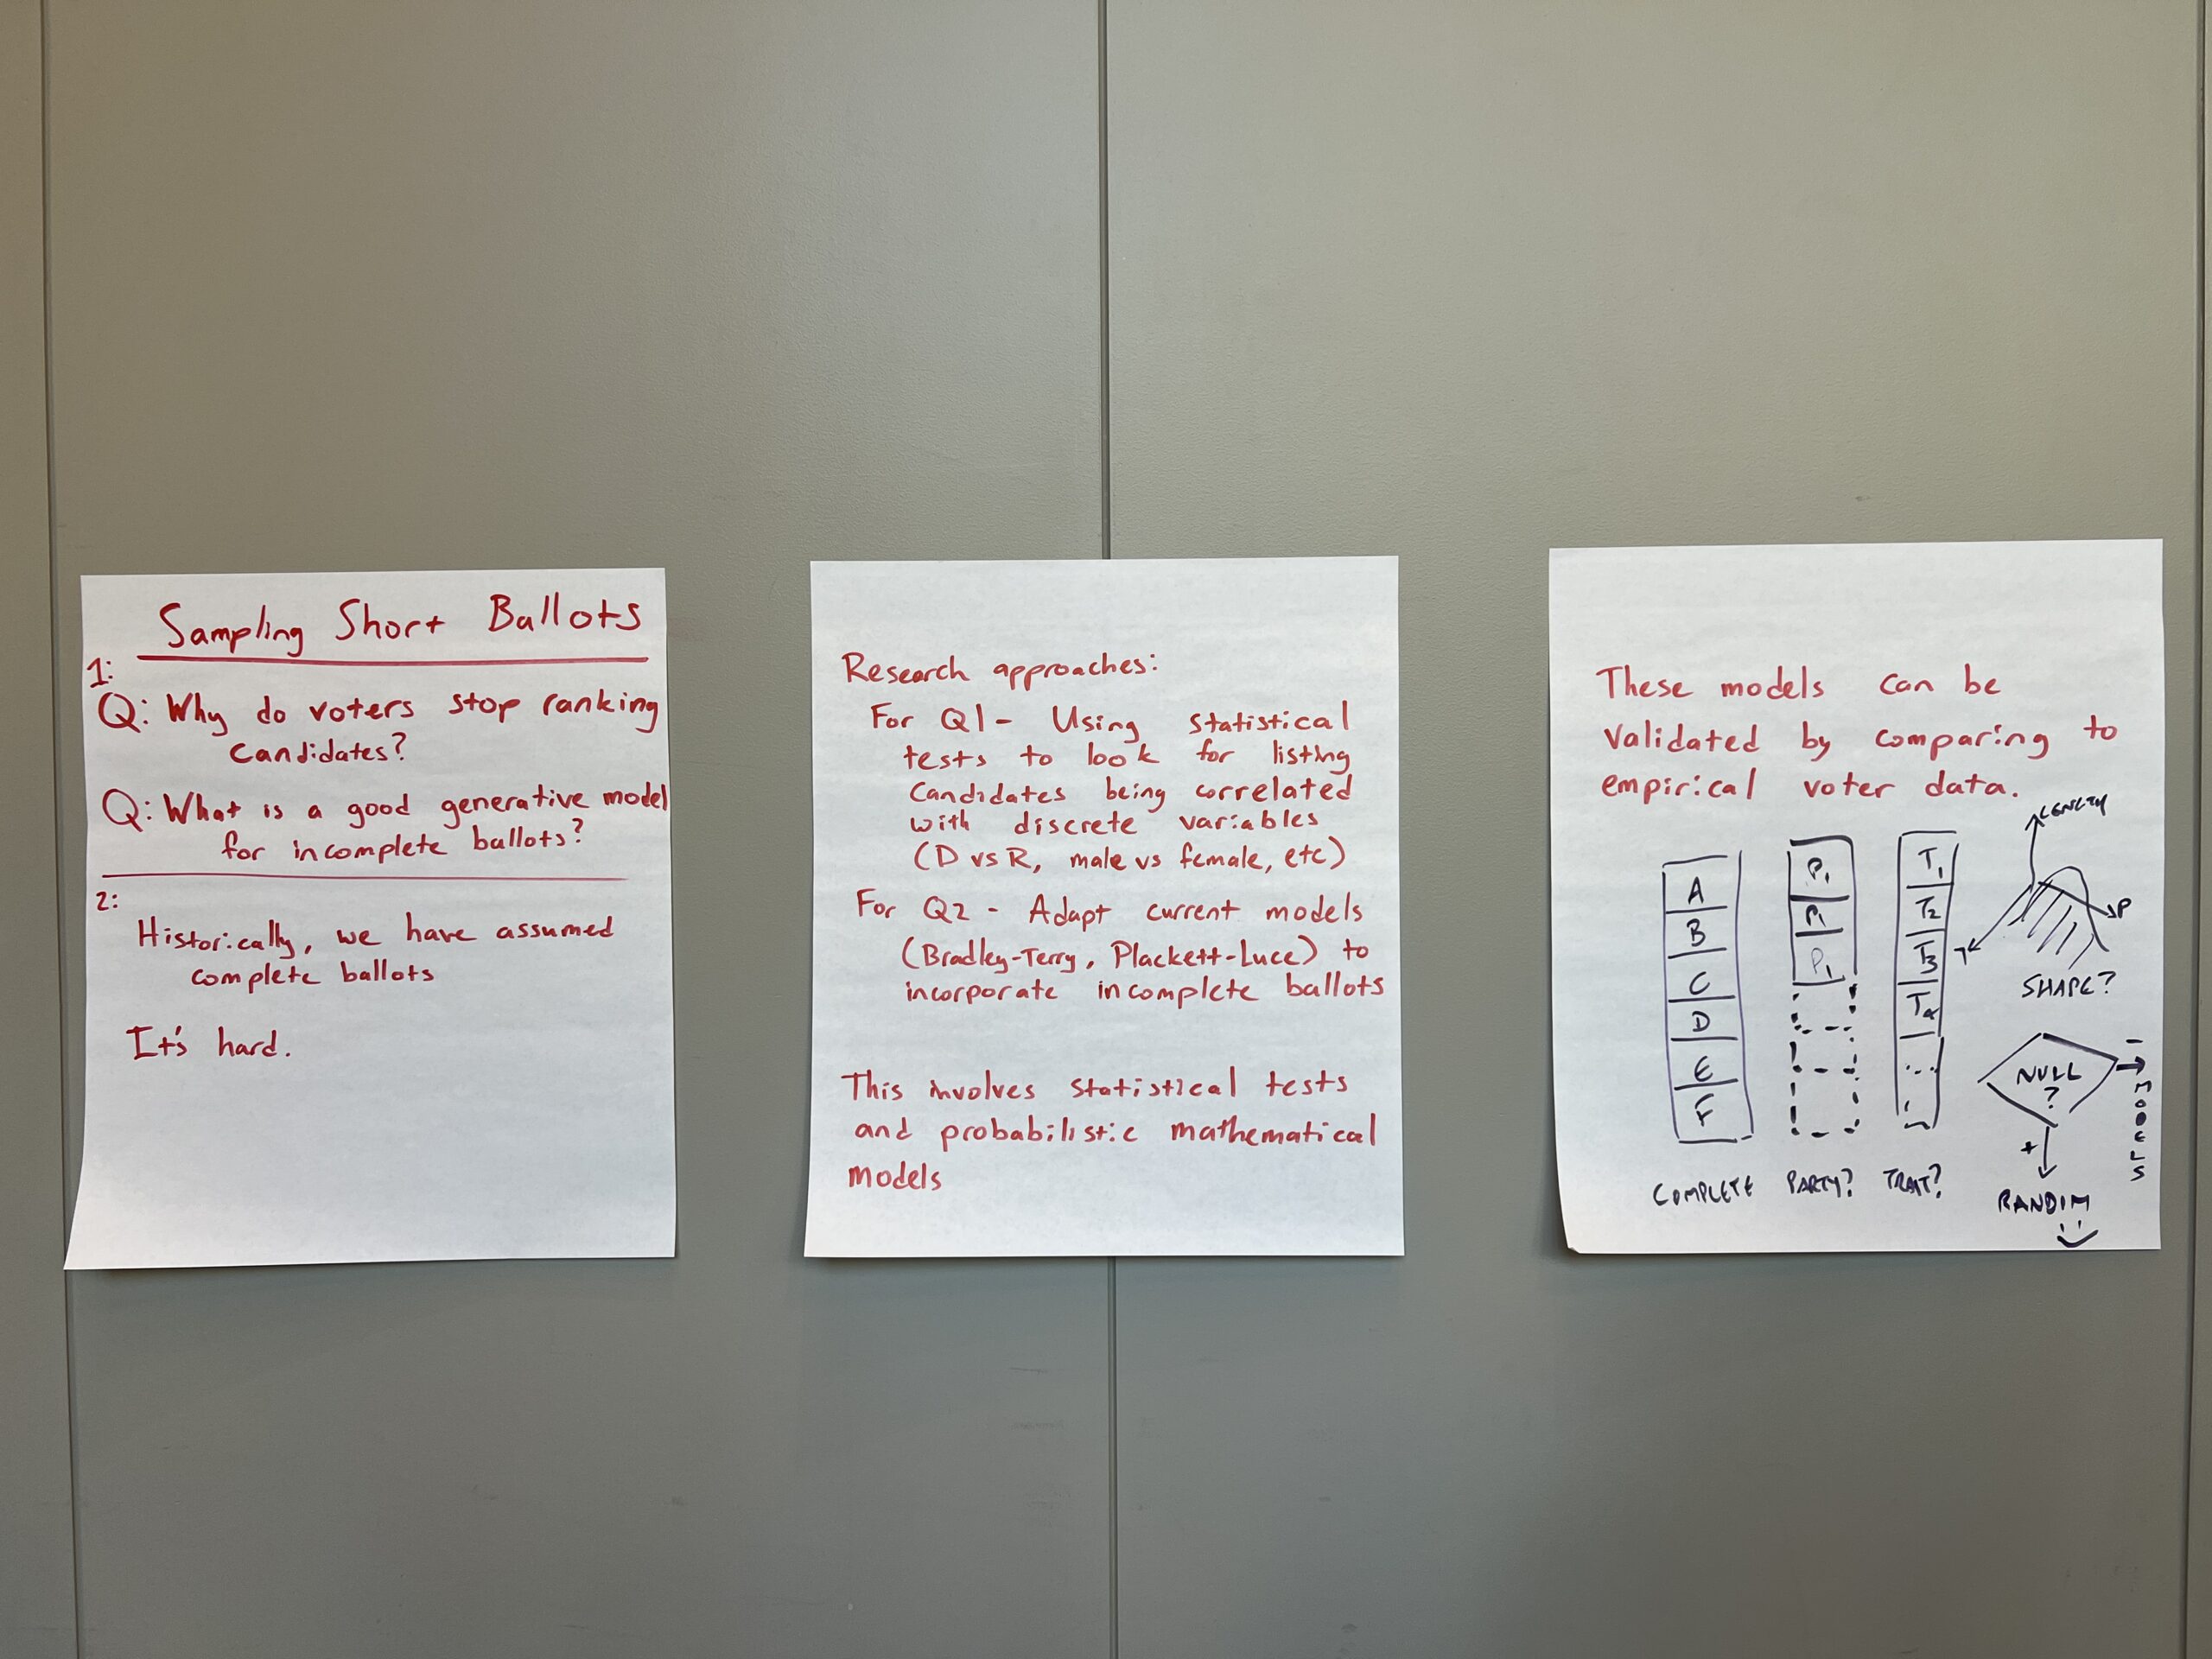 Sampling Short Ballots
1:
Q: Why do voters stop ranking
candidates?
Q: What is a good generative model
for incomplete ballots?
2:
Historically, we have assumed
complete ballots
It's hard.
Research approaches:
For Q1 - Using statistical
tests to look for listing
candidates being correlated
with discrete variables
(D vs R, male vs female, etc)
For Q2 - Adapt current models
(Bradley-Terry, Plackett-Luce) to
incorporate incomplete ballots
This involves statistical tests
and probabilistic mathematical
models
These models can be
validated by comparing to
empirical voter data.
A
B
C
D
E
F
COMPLETE
P1
P1
P1
PARTY?
T1
T2
T3
T4
...
TRAIT?
LENGTH
P
T
SHAPE?
NULL
?
-
MODELS
+
RANDOM